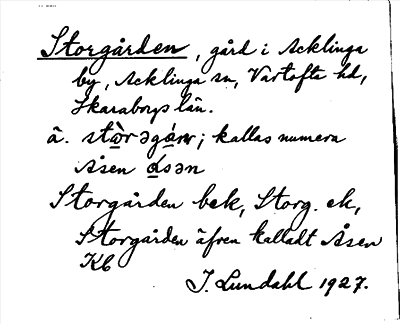 Storgården, gård i Acklinga
by, Acklinga sn, Vartofta hd,
Skaraborgs län.
ä. stòrəgánɐ; kallas numera
Åsen ɑ́sən
Storgården bek, Storg. ek,
Storgården äfven kalladt Åsen
Kb
J. Lundahl 1927.